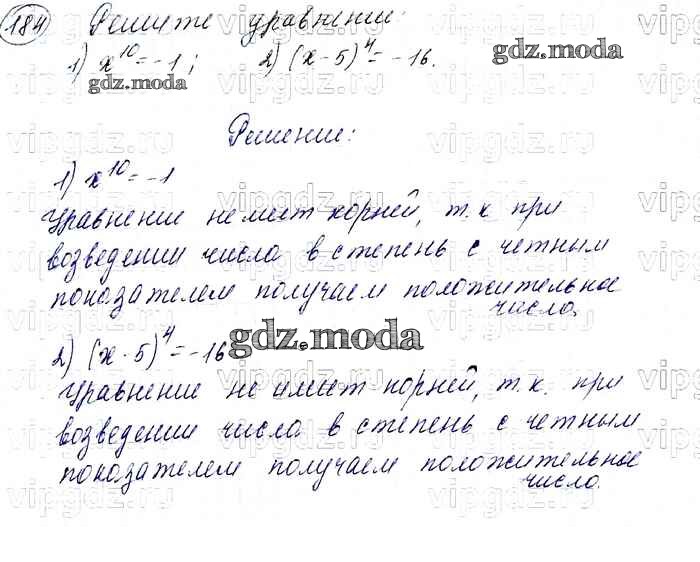 184 Решите уравнение:
1) x¹⁰ = -1; 2) (x - 5)⁴ = -16.
gdz.moda gdz.moda
Решение:
1) x¹⁰ = -1
Уравнение не имеет корней, т.к при
возведении числа в степень с четным
показателем получаем положительное
число.
2) (x - 5)⁴ = -16
gdz.moda
Уравнение не имеет корней, т.к. при
возведении числа в степень с четным
показателем получаем положительное
число.
vipgdz.ru